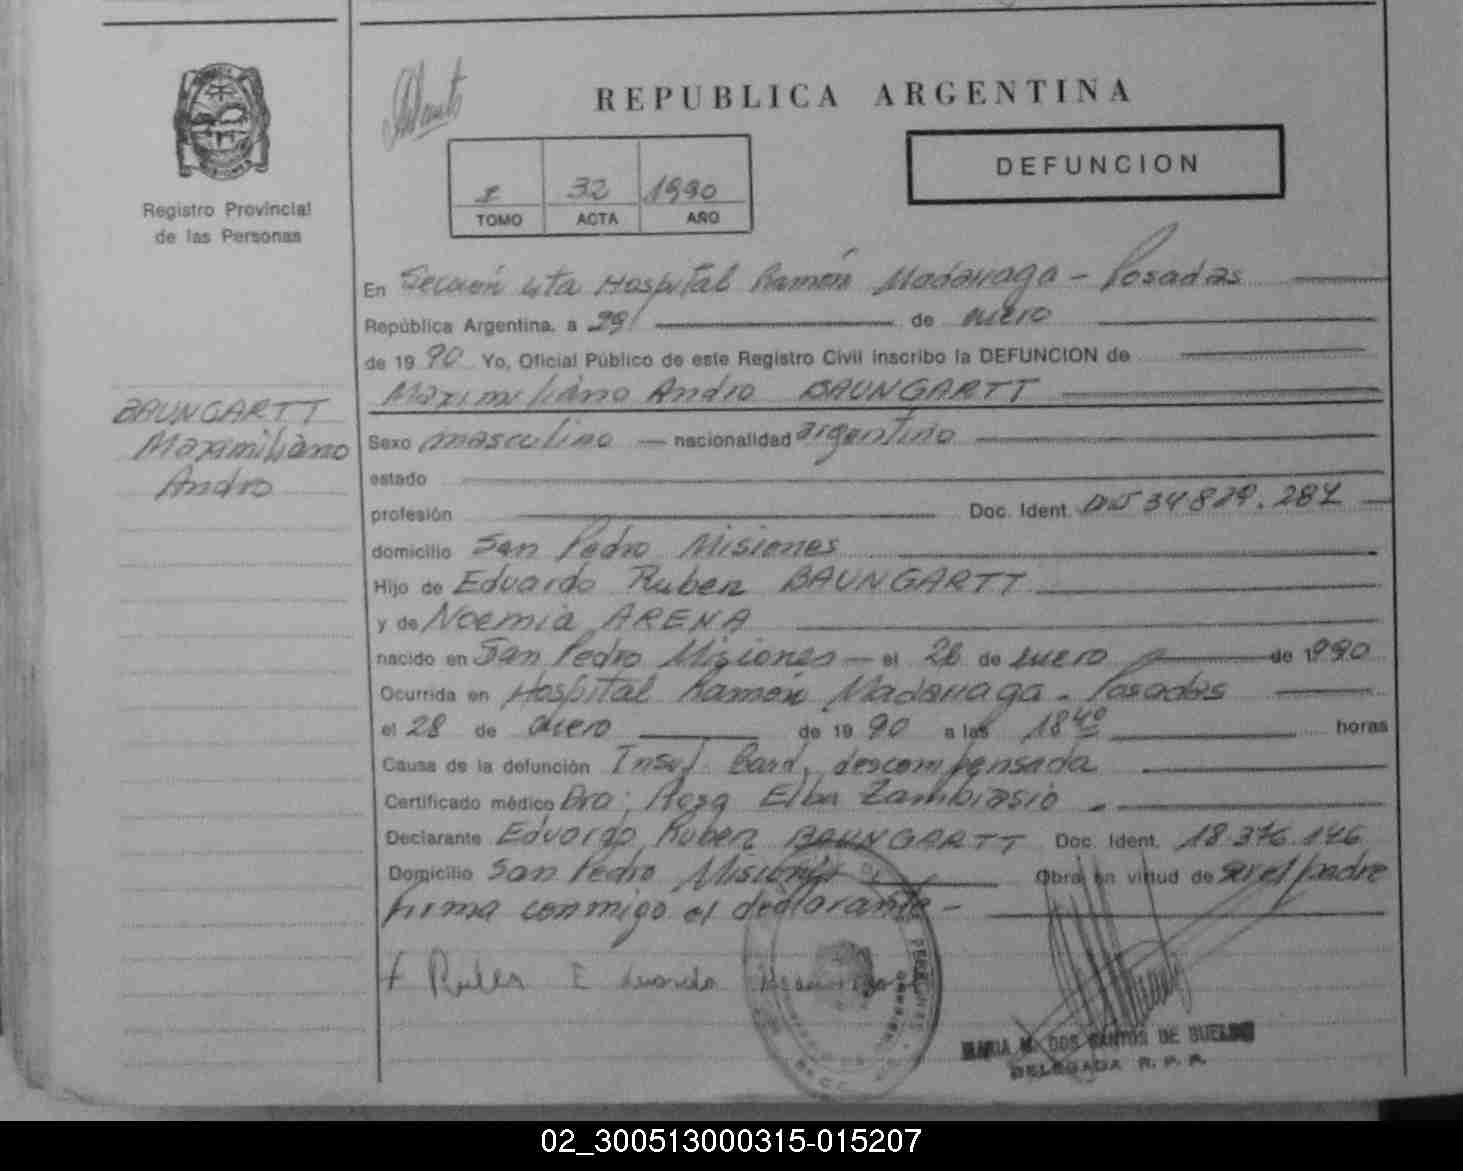 REPUBLICA ARGENTINA
DEFUNCION
I 32 1990
TOMO ACTA AÑO
Registro Provincial
de las Personas
En Sección 4ta Hospital Ramón Madariaga - Posadas
República Argentina, a 29 de enero
de 1990 Yo, Oficial Público de este Registro Civil inscribo la DEFUNCION de
Maximiliano Andro BAUNGARTT
BAUNGARTT
Maximiliano
Andro
Sexo masculino nacionalidad argentino
estado
profesión Doc. Ident. DNI 34.829.287
domicilio San Pedro Misiones
Hijo de Eduardo Ruben BAUNGARTT
y de Noemia ARENA
nacido en San Pedro Misiones - el 28 de enero de 1990
Ocurrida en Hospital Ramón Madariaga - Posadas
el 28 de enero de 1990 a las 18 40 horas
Causa de la defunción Insuf. Card. descompensada
Certificado médico Dra: Rosa Elba Zambiasio
Declarante Eduardo Ruben BAUNGARTT Doc. Ident. 18.376.146
Domicilio San Pedro Misiones Obra en virtud de ser el padre
firma conmigo el declarante -
MARIA M. DOS SANTOS DE
DELEGADA R. P. P.
02_300513000315-015207